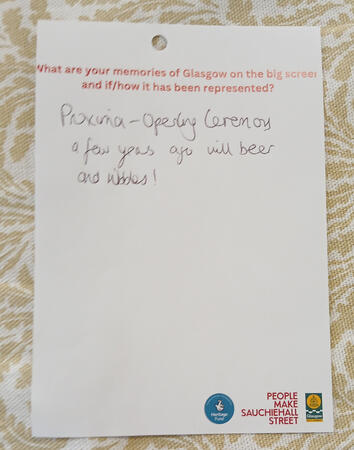 What are your memories of Glasgow on the big screen
and if/how it has been represented?
Proxima - Opening Ceremony
a few years ago with beer
and nibbles!
Heritage
Fund
PEOPLE
MAKE
SAUCHIEHALL
STREET
Glasgow